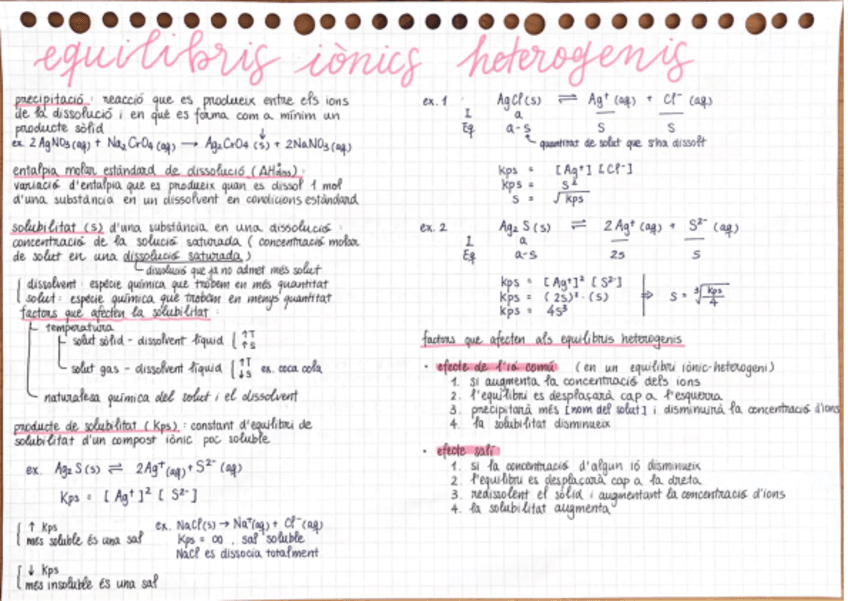 equilibris iònics heterogenis
precipitació: reacció que es produeix entre els ions
de la dissolució i en què es forma com a mínim un
producte sòlid
ex. 2 AgNO₃ (aq) + Na₂CrO₄ (aq) → Ag₂CrO₄ (s) ↓ + 2NaNO₃ (aq)
entalpia molar estàndard de dissolució (ΔH°diss):
variació d'entalpia que es produeix quan es dissol 1 mol
d'una substància en un dissolvent en condicions estàndard
solubilitat (s) d'una substància en una dissolució:
concentració de la solució saturada (concentració molar
de solut en una dissolució saturada)
dissolució que ja no admet més solut
dissolvent: espècie química que trobem en més quantitat
solut: espècie química que trobem en menys quantitat
factors que afecten la solubilitat:
temperatura
solut sòlid - dissolvent líquid ↑T ↑s
solut gas - dissolvent líquid ↑T ↓s ex. coca cola
naturalesa química del solut i el dissolvent
producte de solubilitat (Kps): constant d'equilibri de
solubilitat d'un compost iònic poc soluble
ex. Ag₂S (s) ⇌ 2Ag⁺ (aq) + S²⁻ (aq)
Kps = [Ag⁺]² [S²⁻]
↑ Kps
més soluble és una sal
ex. NaCl(s) → Na⁺(aq) + Cl⁻(aq)
Kps = ∞ . sal soluble
NaCl es dissocia totalment
↓ Kps
més insoluble és una sal
ex. 1 AgCl (s) ⇌ Ag⁺ (aq) + Cl⁻ (aq)
I a
Eq a-s s s
quantitat de solut que s'ha dissolt
Kps = [Ag⁺] [Cl⁻]
Kps = s²
s = √Kps
ex. 2 Ag₂S (s) ⇌ 2 Ag⁺ (aq) + S²⁻ (aq)
I a
Eq. a-s 2s s
Kps = [Ag⁺]² [S²⁻]
Kps = (2s)² · (s) ⇒ s = ∛(Kps/4)
Kps = 4s³
factors que afecten als equilibris heterogenis
· efecte de l'ió comú (en un equilibri iònic-heterogeni)
1. si augmenta la concentració dels ions
2. l'equilibri es desplaçarà cap a l'esquerra
3. precipitarà més [nom del solut] i disminuirà la concentració d'ions
4. la solubilitat disminueix
· efecte salí
1. si la concentració d'algun ió disminueix
2. l'equilibri es desplaçarà cap a la dreta
3. redissolent el sòlid i augmentant la concentració d'ions
4. la solubilitat augmenta